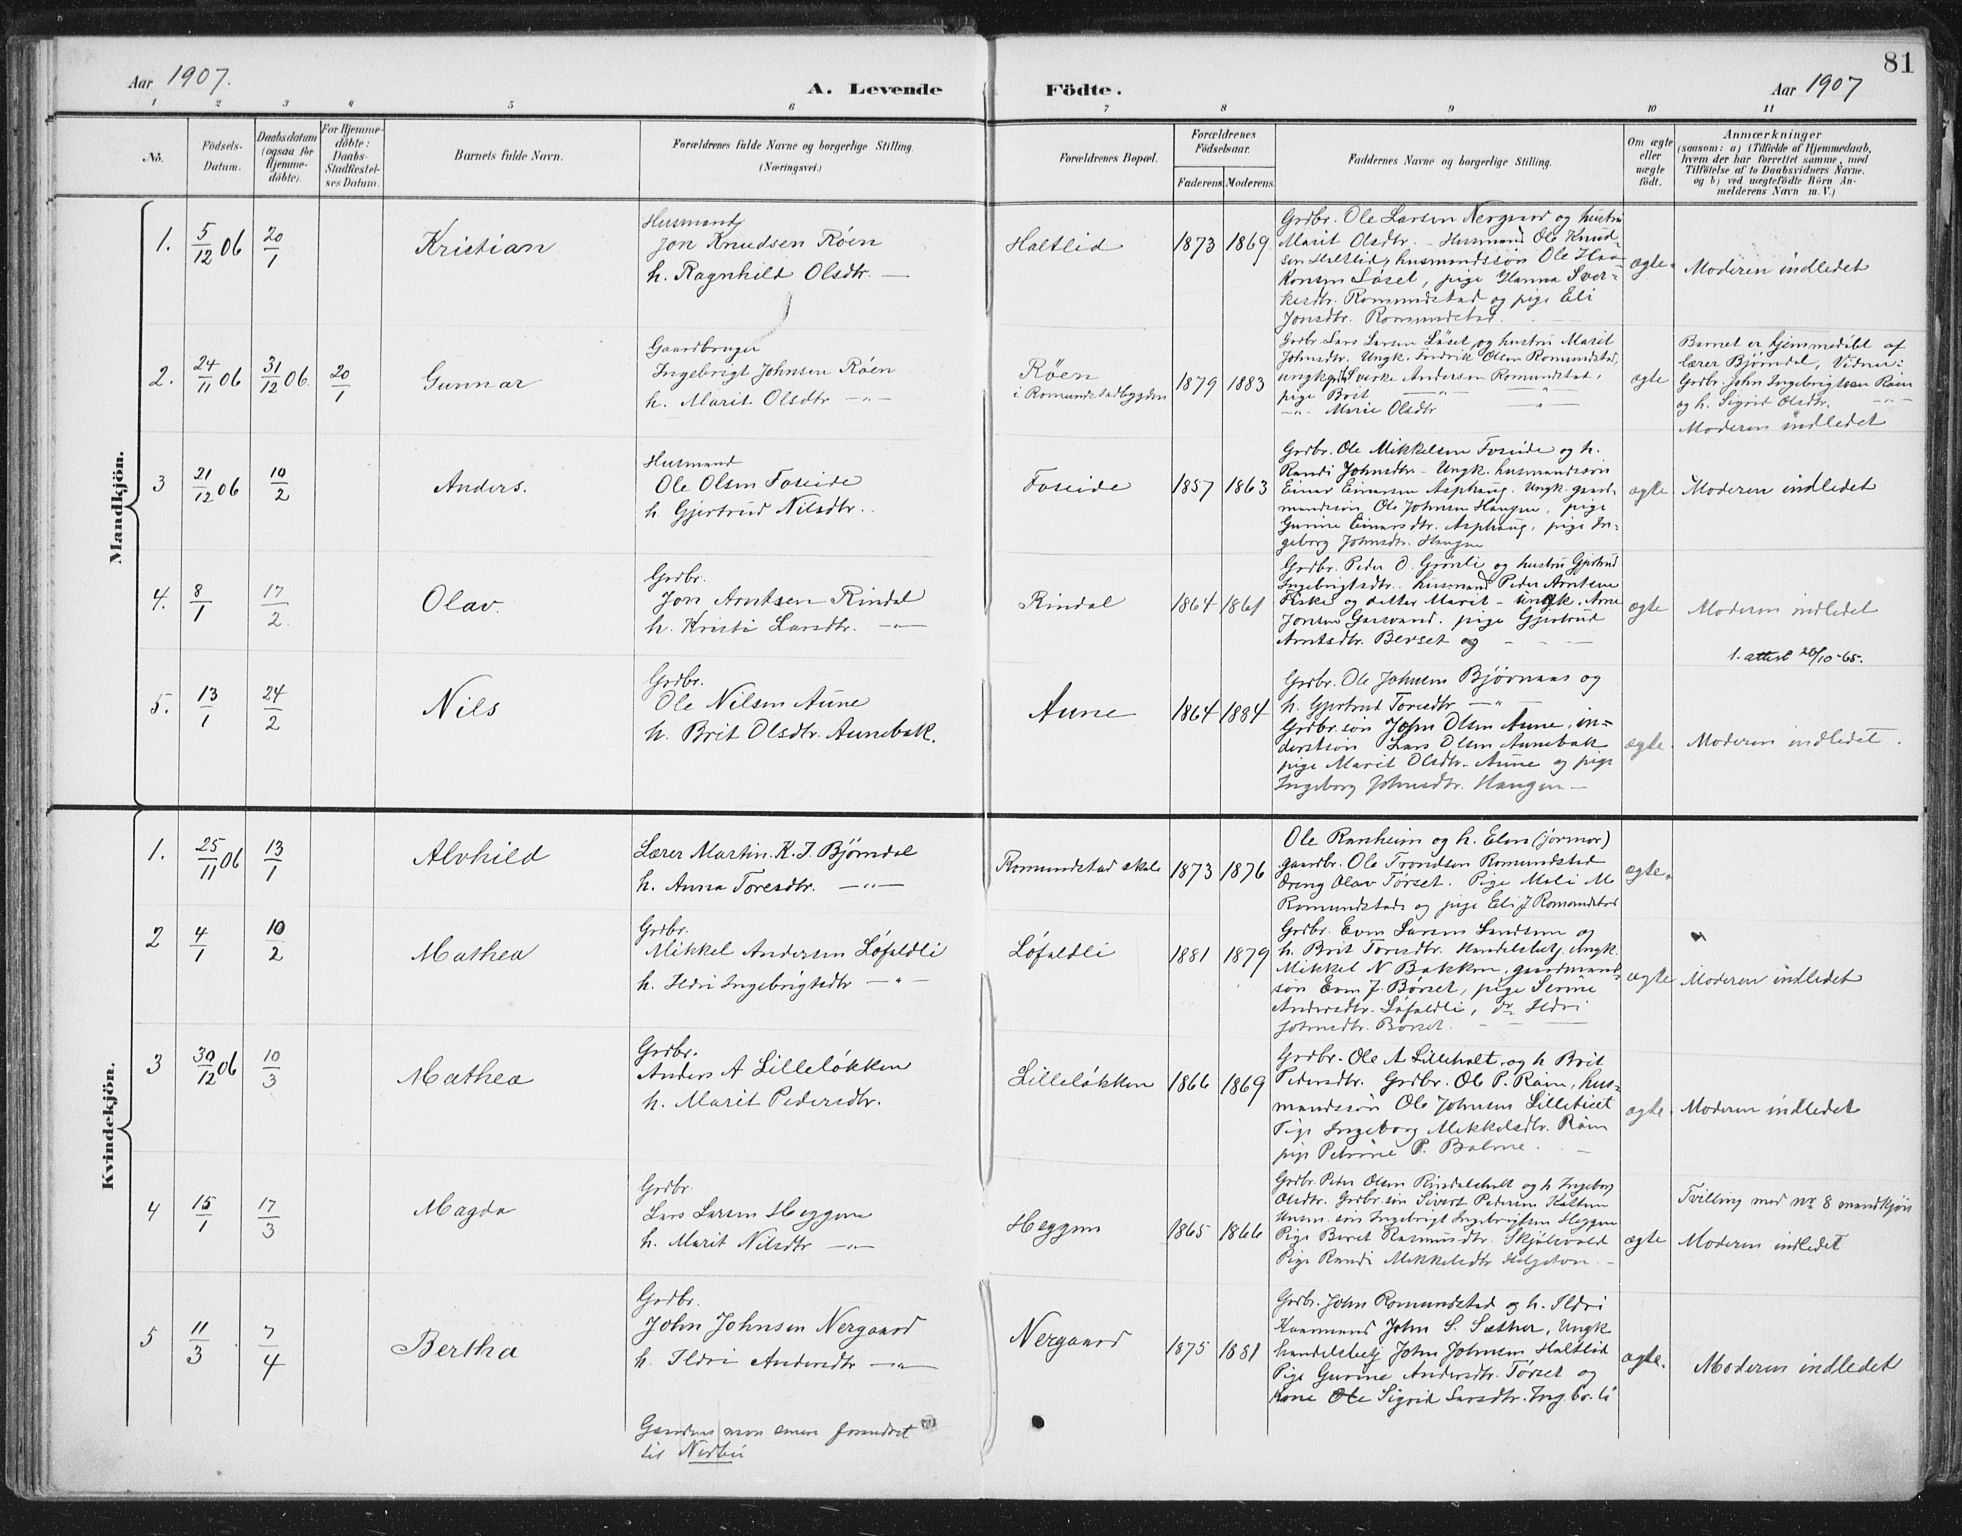 81
Aar 1907.
A. Levende Födte.
Aar 1907
1 2 3 4 5 6 7 8 9 10 11
No.
Födsels-
Datum.
Daabsdatum
(ogsaa for
Hjemme-
döbte).
For Hjemme-
döbte:
Daabs-
Stadfæstel-
ses Datum.
Barnets fulde Navn.
Forældrenes fulde Navne og borgerlige Stilling.
(Næringsvei.)
Forældrenes Bopæl.
Forældrenes
Födselsaar.
Faderens. Moderens.
Faddernes Navne og borgerlige Stilling.
Om ægte
eller
uægte
födt.
Anmærkninger
(saasom: a) i Tilfælde af Hjemmedaab,
hvem der har forrettet samme, med
Tilföielse af to Daabsvidners Navne.
og b) ved uægtefödte Börn An-
melderens Navn m. V.)
Mandkjön.
1. 5/12 06 20/1
Kristian
Husmand
Jon Knudsen Röen
h. Ragnhild Olsdtr. —
Haltlid
1873 1869
Grdbr. Ole Larsen Nergaard og hustru
Marit Olsdtr. - Husmand Ole Knud-
sen Haltlid, husmandssön Ole Haa-
konsen Löset, pige Hanna Sver-
kesdtr. Romundstad og pige Eli
Jonsdtr. Romundstad.
ægte.
Moderen indledet
2. 24/11 06 31/12 06. 20/1
Gunnar
Gaardbruger
Ingebrigt Johnsen Röen
h. Marit Olsdtr —"—
Röen
i Romundstadbygden
1879 1883
Grdbr. Lars Larsen Löset og hustru Marit
Johnsdtr. Ungk. Fredrik Olsen Romundstad,
ungk. Sverke Andersen Romundstad,
pige Brit —"— "
—"— Marie Olsdtr —"—
ægte
Barnet er hjemmedöbt af
lærer Björndal, Vidner:
Grdbr. John Ingebrigtsen Röen
og h. Sigrid Olsdtr. —"—
Moderen indledet
3 21/12 06 10/2
Anders.
Husmand
Ole Olsen Foseide
h. Gjertrud Nilsdtr.
Foseide
1857 1863
Grdbr. Ole Mikkelsen Foseide og h.
Randi Johnsdtr. - Ungk. husmandssön
Einar Einarsen Asphaug. Ungk. gaard-
mandssön Ole Johnsen Haugen, pige
Gurine Einarsdtr. Asphaug, pige In-
geborg Johnsdtr. Haugen
ægte
Moderen indledet
4. 8/1 17/2
Olav.
Grdbr.
Jon Arntsen Rindal
h. Kristi Larsdtr. —"—
Rindal
1864 1861
Grdbr. Peder O. Grönli og hustru Gjertrud
Ingebrigtsdtr. husmand Peder Arntsen
Fiske og datter Marit - ungk. Arne
Jonsen pige Gjertrud
Arntsdtr. Berset og
ægte
Moderen indledet
1. attest 26/10-65.
5. 13/1 24/2
Nils
Grdbr.
Ole Nilsen Aune
h. Brit Olsdtr. Aunebak.
Aune
1864 1884
Grdbr. Ole Johnsen Björnaas og
h. Gjertrud Toresdtr —"—
Grdbr.sön John Olsen Aune, in-
derstsön Lars Olsen Aunebak
pige Marit Olsdtr. Aune og pige
Ingeborg Johnsdtr. Haugen —
ægte.
Moderen indledet.
Kvindekjön.
1. 25/11 06 13/1
Alvhild
Lærer Martin K. J. Björndal
h. Anna Toresdtr. —"—
Romundstad skole
1873 1876
Ole Ranheim og h. Elen (jormor)
gaardbr. Ole Trondsen Romundstad
dreng Olav Törset. Pige Mali M
Romundstad og pige Eli J Romundstad
ægte.
2 4/1 10/2
Mathea
Grdbr.
Mikkel Andersen Löfaldli
h. Ildri Ingebrigtsdtr —"—
Löfaldli
1881 1879
Grdbr. Even Larsen Sandsen og
h. Brit Toresdtr. Handelsbetj. Ungk.
Mikkel N Bakken, gaardmand-
sön Even J. Börset, pige Serine
Andersdtr. Löfaldli, do Ildri
Johnsdtr. Börset.
ægte
Moderen indledet
3 30/12 06 10/3
Mathea
Grdbr.
Anders A Lillelökken
h. Marit Pedersdtr.
Lillelökken
1866 1869
Grdbr. Ole A Lilleholt og h Brit
Pedersdtr. Grdbr. Ole P. Röen, hus-
mandssön Ole Johnsen
Pige Ingeborg Mikkelsdtr. Röen
pige Petrine P. Bolme.
ægte.
Moderen indledet
4 15/1 17/3
Magda
Grdbr.
Lars Larsen Heggem
h. Marit Nilsdtr —"—
Heggem
1865 1866
Grdbr. Peder Olsen Rindalsholt og h Ingeborg
Olsdtr. Grdbr.sön Sivert Pedersen Kaltun
sön Ingebrigt Ingebrigtsen Heggem
Pige Beret Rasmusdtr. Skjölsvold
Pige Randi Mikkelsdtr Helgeton —
ægte
Tvilling med nr 8 mandkjön
Moderen indledet
5 11/3 7/4
Bertha
Grdbr.
John Johnsen Nergaard
h. Ildri Andersdtr —"—
Nergaard
1875 1881
Grdbr. John Romundstad og h. Ildri
Kaarmand John S. Sæther, Ungk
handelsbetj John Johnsen Haltlid
Pige Gurine Andersdtr. Törset og
Kone Ole Sigrid Larsdtr.
ægte.
Moderen indledet
Gaardens navn senere forandret
til Nerbu